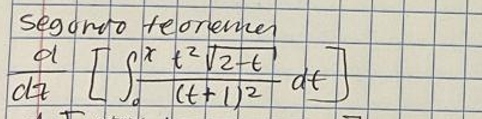 segundo teorema
d/dz [ ∫₀ˣ t²√(2-t) / (t+1)² dt ]